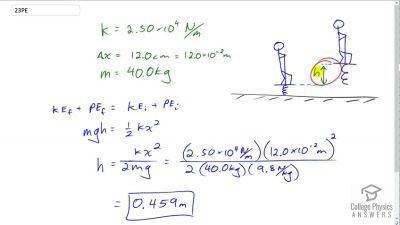 23PE
k = 2.50×10⁴ N/m
Δx = 12.0cm = 12.0×10⁻² m
m = 40.0kg
h
KE_f + PE_f = KE_i + PE_i
mgh = ½ kx²
h = kx² / 2mg = (2.50×10⁴ N/m)(12.0×10⁻² m)² / 2(40.0kg)(9.8 N/kg)
= 0.459m
College Physics
ANSWERS